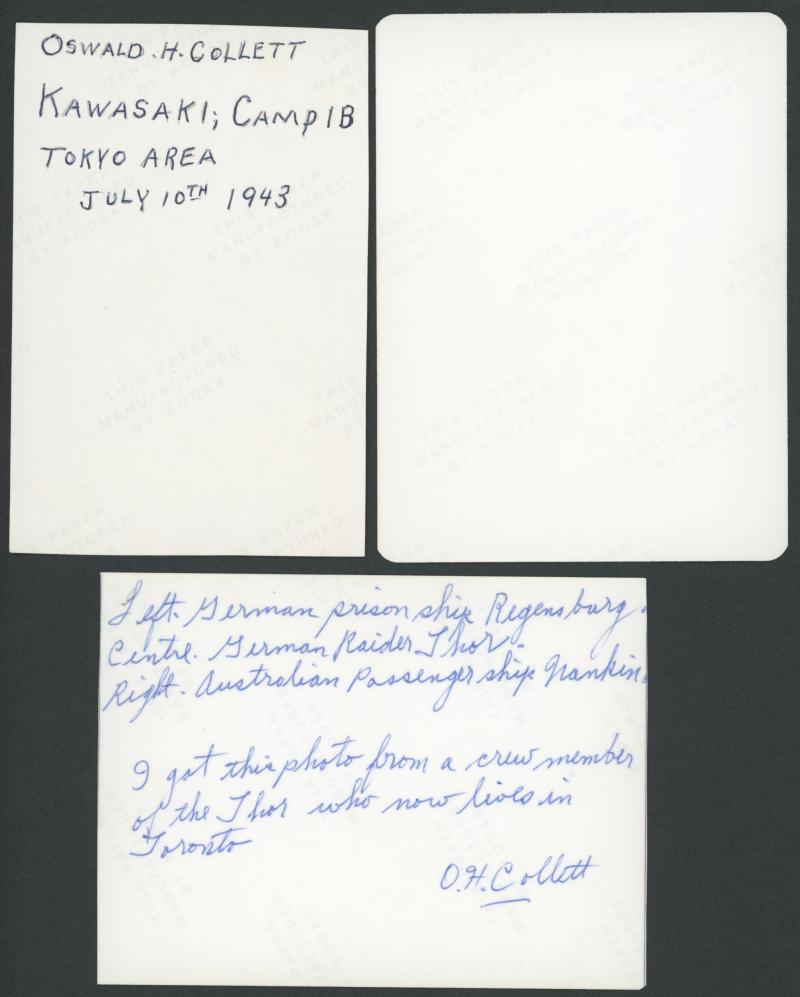 OSWALD.H.COLLETT
KAWASAKI; CAMP 1B
TOKYO AREA
JULY 10TH 1943
THIS PAPER
MANUFACTURED
BY KODAK
Left. German prison ship Regensburg.
Centre. German Raider Thor.
Right. Australian Passenger ship Nankin.
I got this photo from a crew member
of the Thor who now lives in
Toronto
O.H.Collett